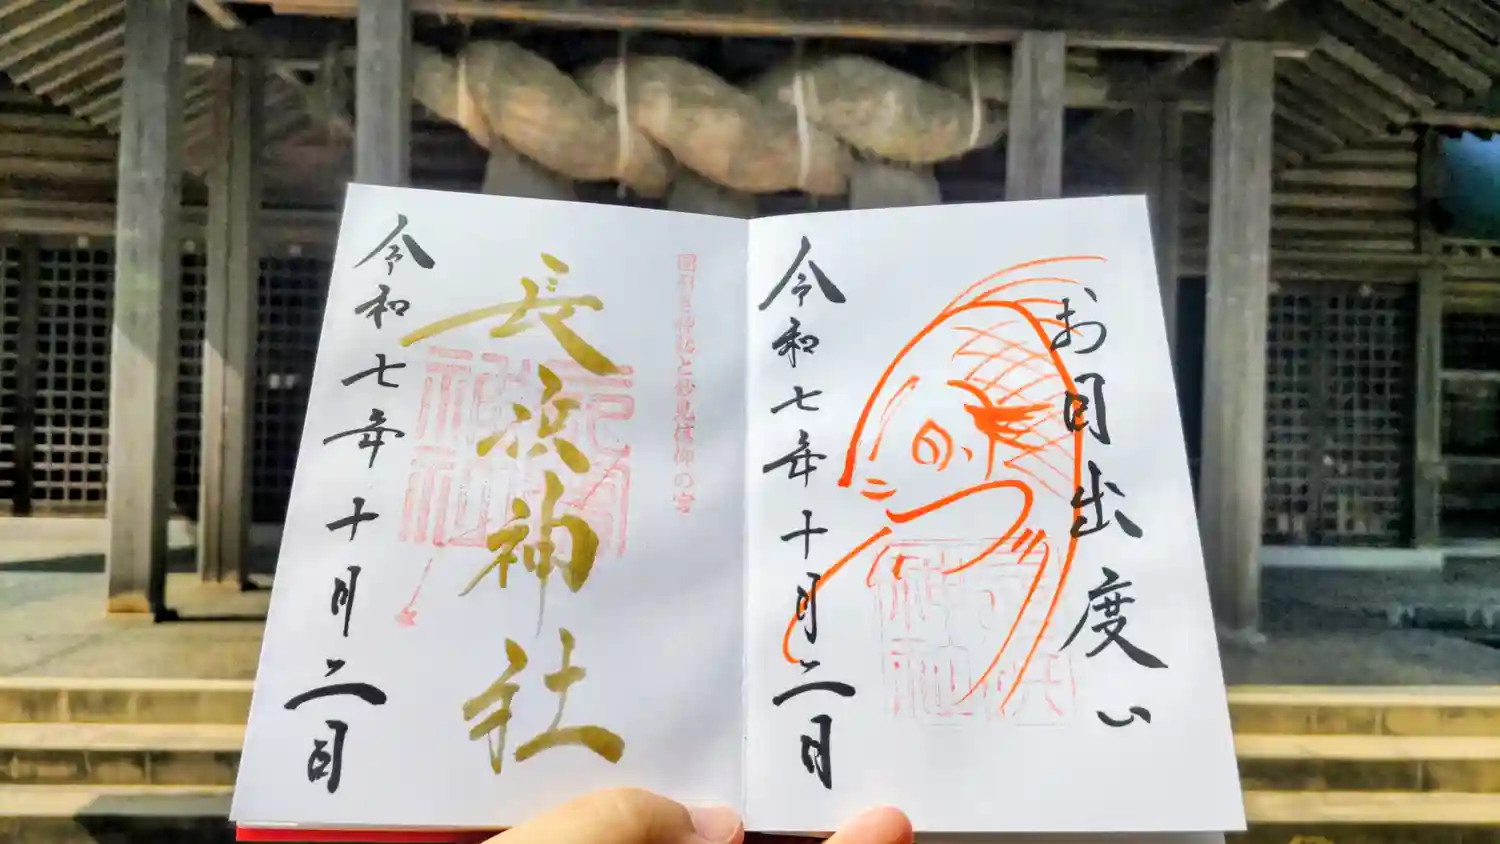 お目出度い
令和七年十月二日
国引き神話と妙見信仰の宮
長浜神社
令和七年十月二日